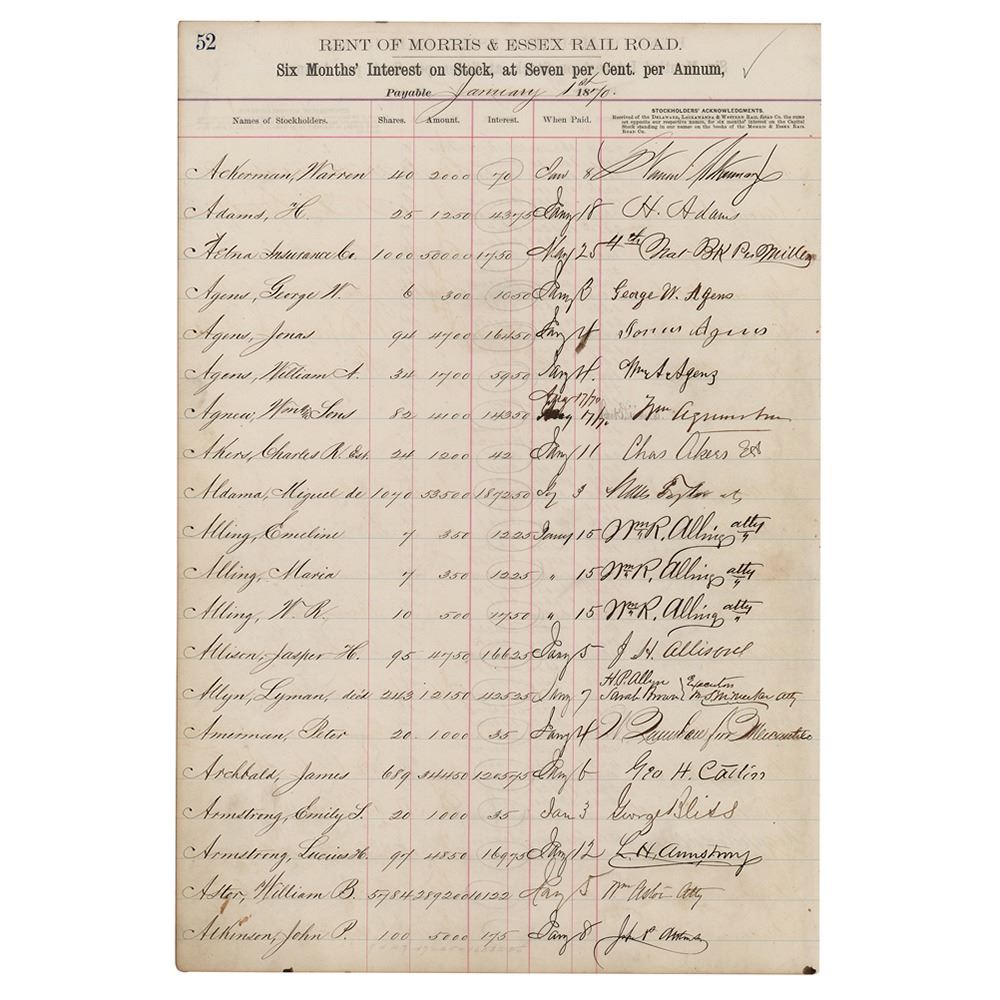 52
RENT OF MORRIS & ESSEX RAIL ROAD.
Six Months' Interest on Stock, at Seven per Cent. per Annum,
Payable January 1st 1870.
Names of Stockholders. Shares. Amount. Interest. When Paid. STOCKHOLDERS' ACKNOWLEDGMENTS.
Received of the DELAWARE, LACKAWANNA & WESTERN RAIL ROAD CO. the sums
set opposite our respective names, for six months' interest on the Capital
Stock standing in our names on the books of the MORRIS & ESSEX RAIL
ROAD CO.
Ackerman, Warren 40 2000 70 Jan 8 Warren Ackerman
Adams, H. 25 1250 4375 Jany 18 H. Adams
Aetna Insurance Co. 1000 50000 1750 May 25 4th Nat BK Per Miller
Agens, George W. 6 300 1050 Jany 3 George W. Agens
Agens, Jonas 94 4700 16450 Jany 4 Jonas Agens
Agens, William A. 34 1700 5950 Jany 4. Wm A Agens
Agnew, Wm & Sons 82 4100 14350 Jany 17/70 Wm Agnew
Akers, Charles R. Est. 24 1200 42 Jany 11 Chas Akers
Aldama, Miguel de 1070 53500 187250 Jy 3
Alling, Emeline 7 350 1225 Jany 15 Wm R. Alling atty
Alling, Maria 7 350 1225 " 15 Wm R. Alling atty
Alling, W. R. 10 500 1750 " 15 Wm R. Alling atty
Allison, Jasper H. 95 4750 16625 Jany 5 J H. Allison
Allyn, Lyman, decd 243 12150 42525 Jany 7 H. P. Allyn Sarah Brown Executors atty
Amerman, Peter 20 1000 35 Jany 4 for Mercantile
Archbald, James 689 34450 120575 Jany 6 Geo H. Catlin
Armstrong, Emily S. 20 1000 35 Jan 3 George Bliss
Armstrong, Lucius H. 97 4850 16975 Jany 12 L. H. Armstrong
Astor, William B. 5784 289200 10122 Jany 5 Wm Astor Atty
Atkinson, John P. 100 5000 175 Jany 8 John P Atkinson